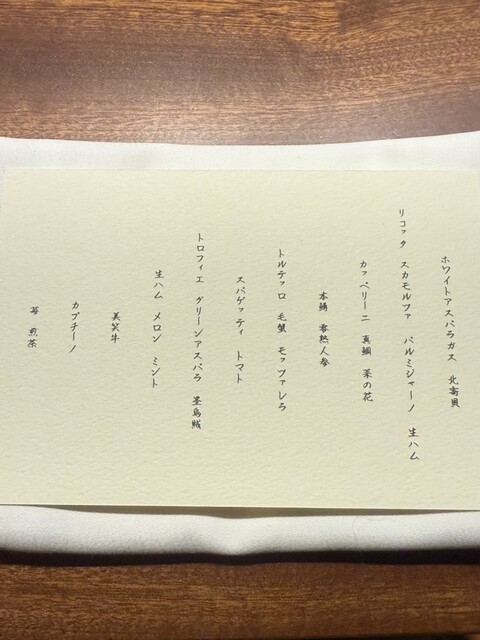 ホワイトアスパラガス 北寄貝
リコッタ スカモルファ パルミジャーノ 生ハム
カッペリーニ 真鯛 菜の花
本鴨 雪熟人参
トルテッロ 毛蟹 モッツァレラ
スパゲッティ トマト
トロフィエ グリーンアスパラ 墨烏賊
生ハム メロン ミント
美笑牛
カプチーノ
苺 煎茶